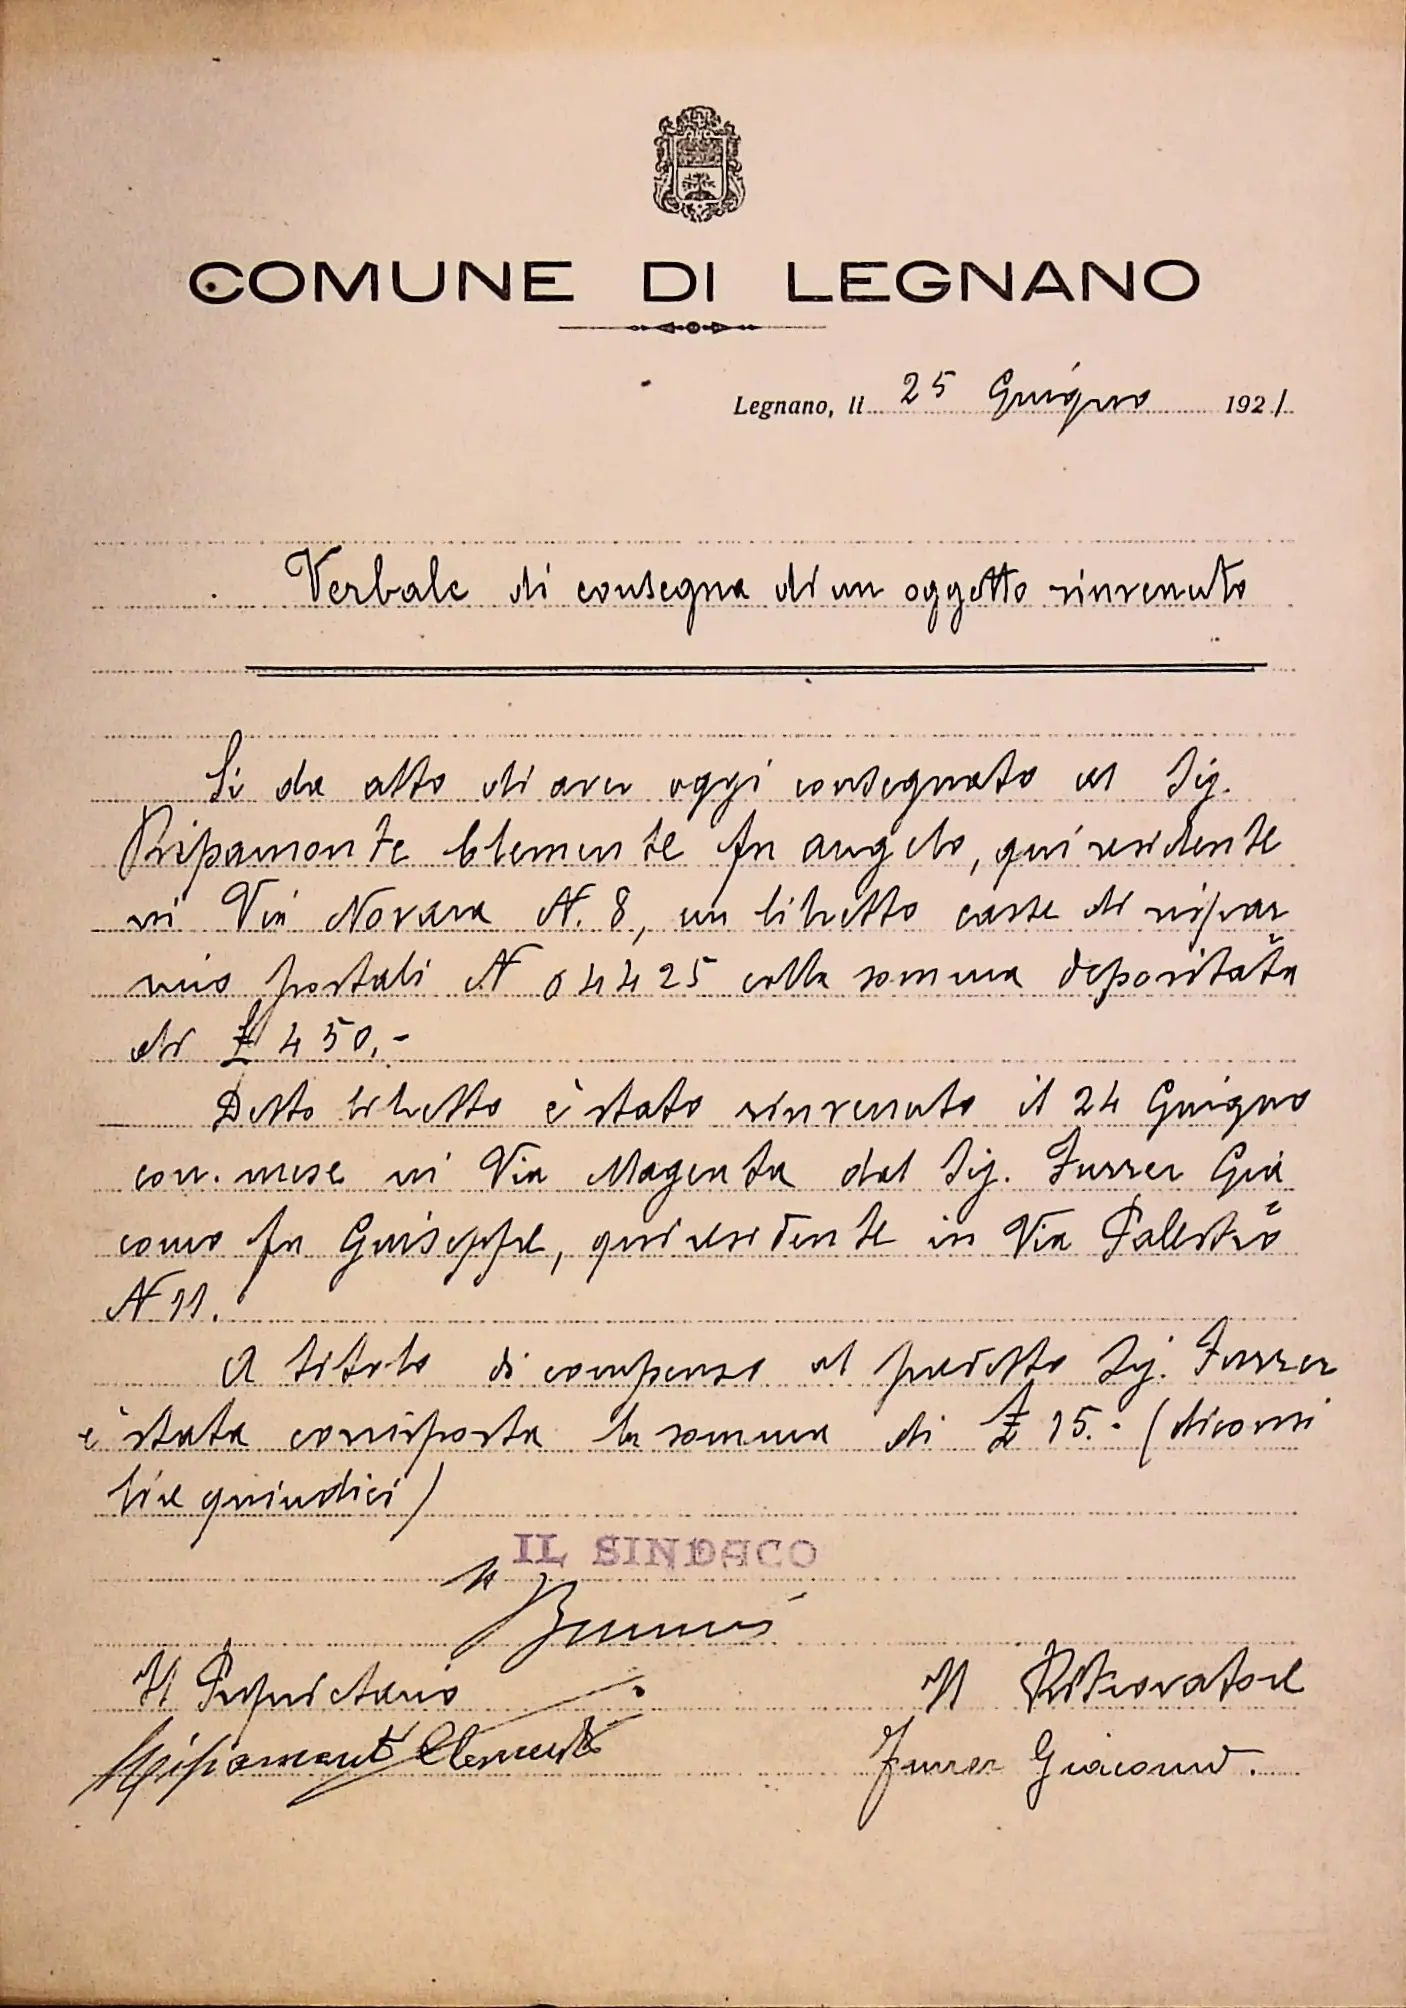 COMUNE DI LEGNANO
Legnano, li 25 Giugno 1921
Verbale di consegna di un oggetto rinvenuto
Si da atto di aver oggi consegnato al Sig.
Ripamonte Clemente fu Angelo, qui residente
in Via Novara N. 8, un libretto casse di rispar
mio postali N 04425 colla somma depositata
di £ 450.-
Detto libretto è stato rinvenuto il 24 Giugno
corr. mese in Via Magenta dal Sig. Furrer Gia
como fu Giuseppe, qui residente in Via Palestro
N 11.
A titolo di compenso al predetto Sig. Furrer
è stata corrisposta la somma di £ 15.- (diconsi
lire quindici)
IL SINDACO
Il Proprietario Il Ritrovatore
Ripamonti Clemente Furrer Giacomo.